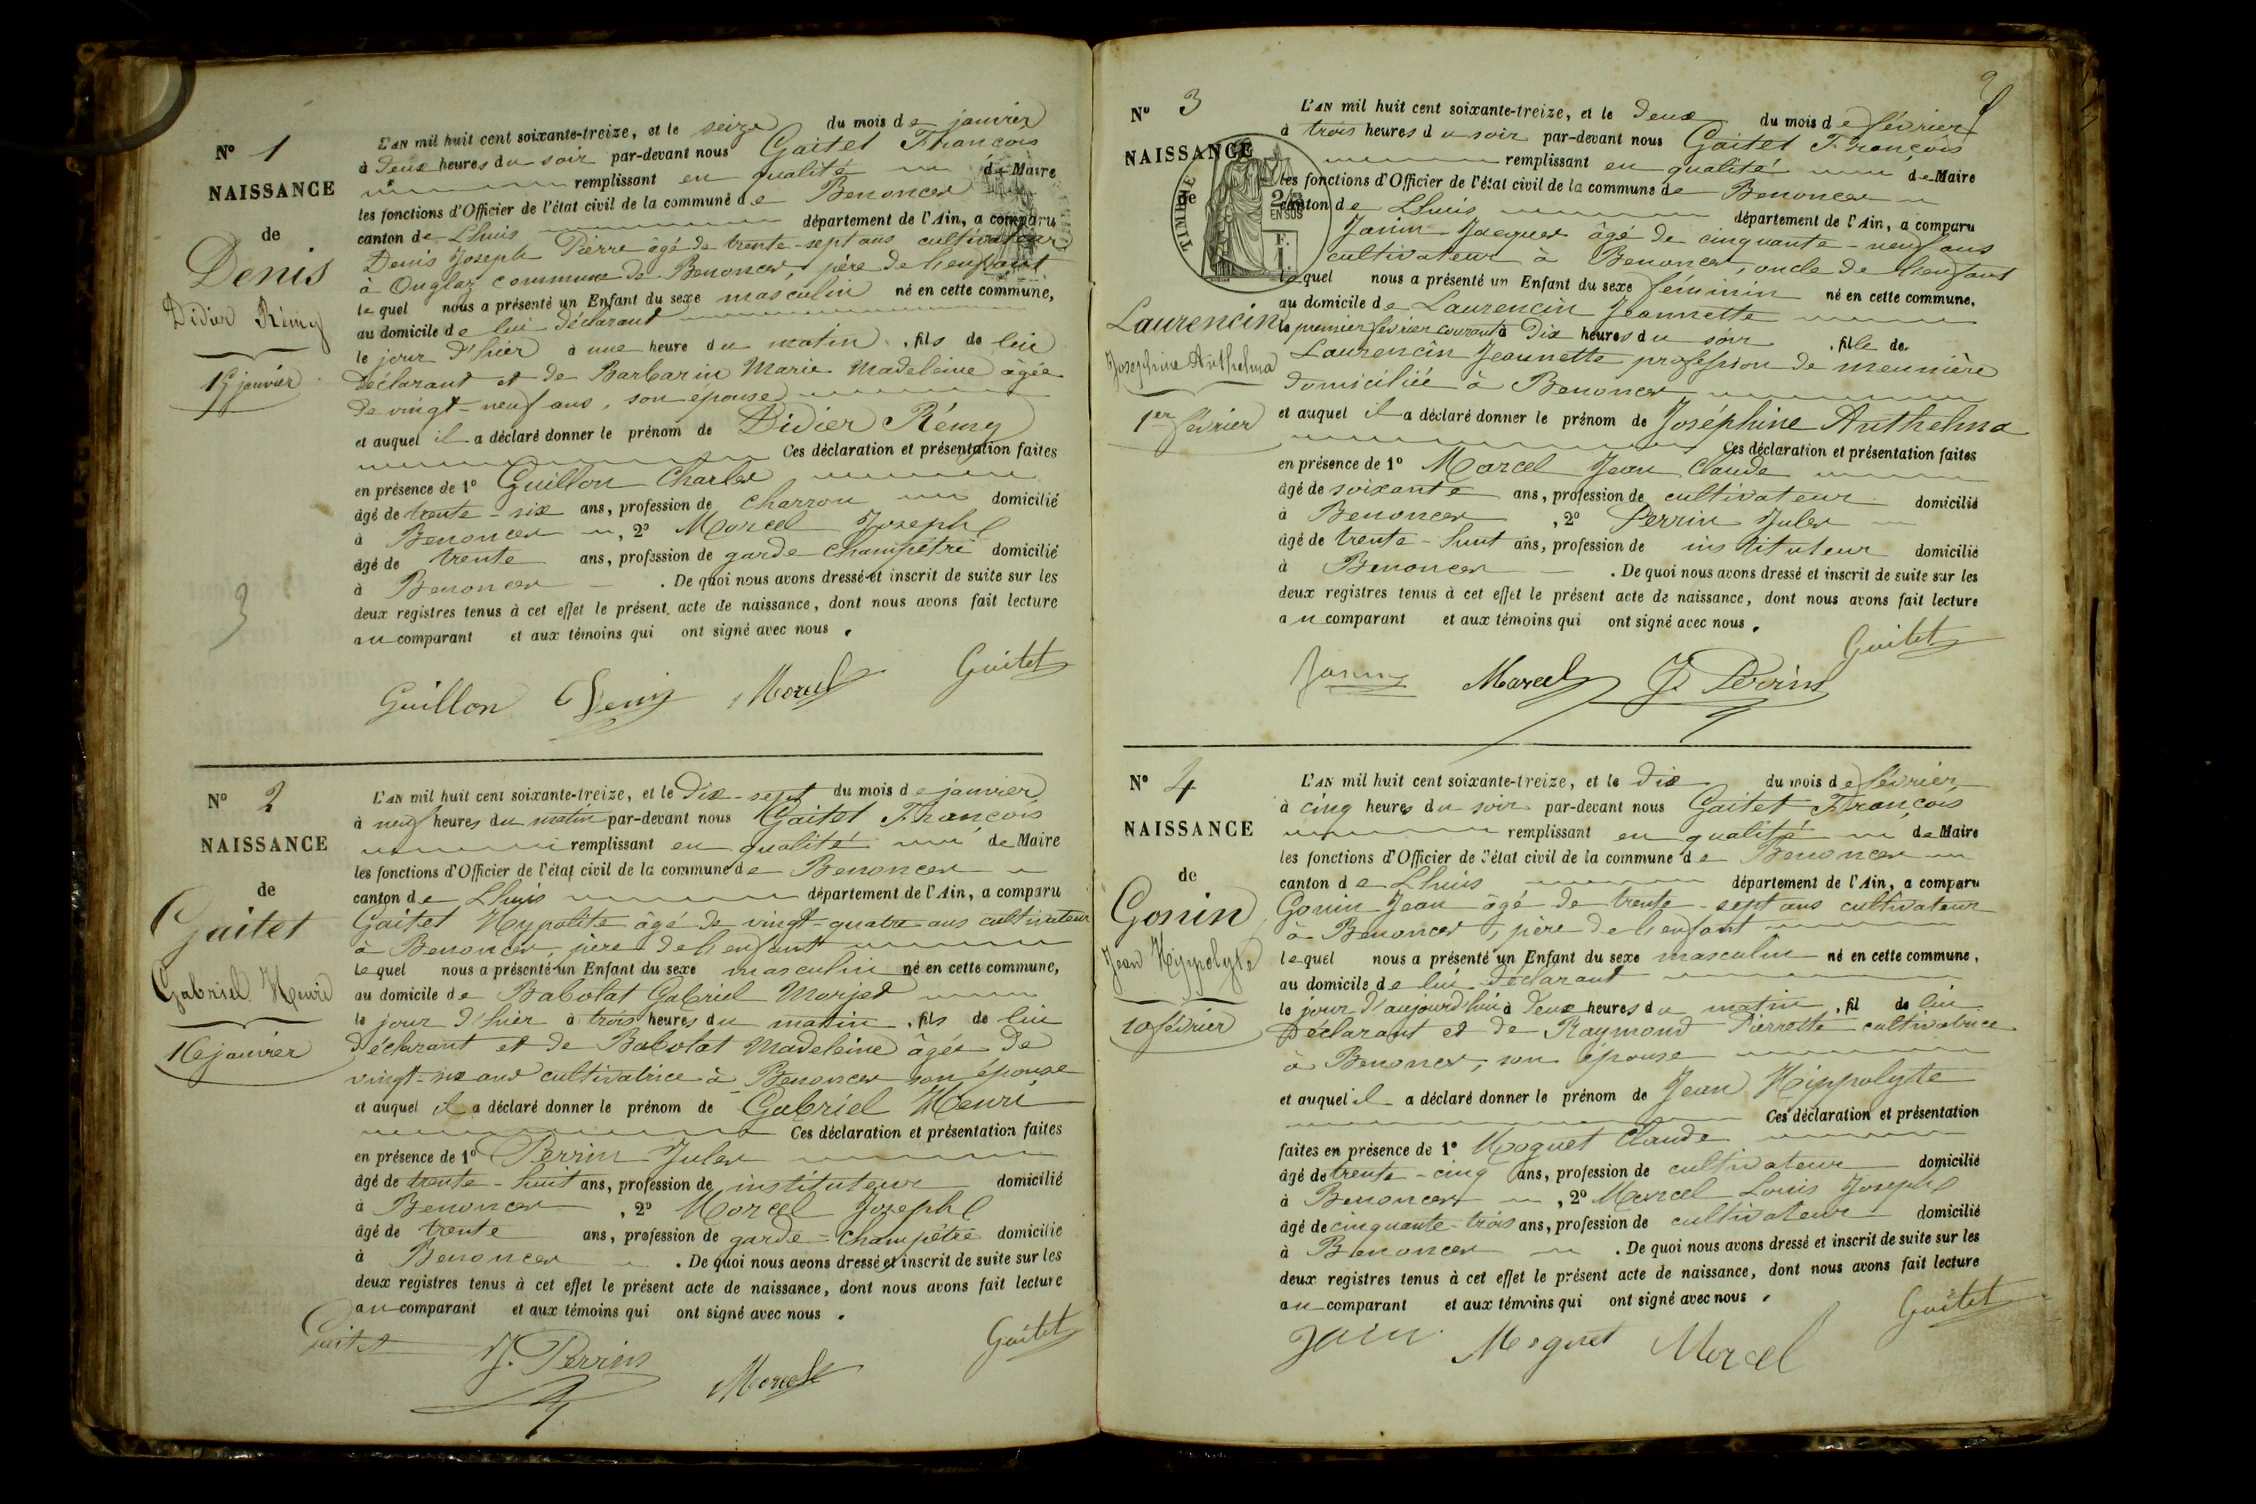 N° 1
NAISSANCE
de
Denis
Didier Rémy
15 janvier
L'AN mil huit cent soixante-treize, et le seize du mois de janvier
à deux heures du soir par-devant nous Gaitet François
remplissant en qualité de Maire
les fonctions d'Officier de l'état civil de la commune de Benonces
canton de Lhuis département de l'Ain, a comparu
Denis Joseph Pierre âgé de trente-sept ans cultivateur
à Onglaz commune de Benonces, père de l'enfant
lequel nous a présenté un Enfant du sexe masculin né en cette commune,
au domicile de lui déclarant
le jour d'hier à une heure du matin, fils de lui
déclarant et de Barbarin Marie Madeleine âgée
de vingt-neuf ans, son épouse
et auquel il a déclaré donner le prénom de Didier Rémy
Ces déclaration et présentation faites
en présence de 1° Guillon Charles
âgé de trente-six ans, profession de charron domicilié
à Benonces, 2° Marcel Joseph
âgé de trente ans, profession de garde-champêtre domicilié
à Benonces. De quoi nous avons dressé et inscrit de suite sur les
deux registres tenus à cet effet le présent acte de naissance, dont nous avons fait lecture
au comparant et aux témoins qui ont signé avec nous.
3
Guillon Denis Marcel Gaitet
N° 2
NAISSANCE
de
Gaitet
Gabriel Henri
16 janvier
L'AN mil huit cent soixante-treize, et le dix-sept du mois de janvier
à neuf heures du matin par-devant nous Gaitet François
remplissant en qualité de Maire
les fonctions d'Officier de l'état civil de la commune de Benonces
canton de Lhuis département de l'Ain, a comparu
Gaitet Hypolite âgé de vingt-quatre ans cultivateur
à Benonces, père de l'enfant
lequel nous a présenté un Enfant du sexe masculin né en cette commune,
au domicile de Babolat Gabriel Marjed
le jour d'hier à trois heures du matin, fils de lui
déclarant et de Babolat Madeleine âgée de
vingt-six ans cultivatrice à Benonces son épouse
et auquel il a déclaré donner le prénom de Gabriel Henri
Ces déclaration et présentation faites
en présence de 1° Perrin Jules
âgé de trente-huit ans, profession de instituteur domicilié
à Benonces, 2° Marcel Joseph
âgé de trente ans, profession de garde-champêtre domicilié
à Benonces. De quoi nous avons dressé et inscrit de suite sur les
deux registres tenus à cet effet le présent acte de naissance, dont nous avons fait lecture
au comparant et aux témoins qui ont signé avec nous.
Gaitet J. Perrin Marcel Gaitet
2
N° 3
NAISSANCE
de
TIMBRE
2/10
EN SUS
Laurencin
Joséphine Anthelma
1er février
L'AN mil huit cent soixante-treize, et le deux du mois de février
à trois heures du soir par-devant nous Gaitet François
remplissant en qualité de Maire
les fonctions d'Officier de l'état civil de la commune de Benonces
canton de Lhuis département de l'Ain, a comparu
Janin Jacques âgé de cinquante-neuf ans
cultivateur à Benonces, oncle de l'enfant
lequel nous a présenté un Enfant du sexe féminin né en cette commune.
au domicile de Laurencin Jeannette
le premier février courant à dix heures du soir, fille de
Laurencin Jeannette profession de meunière
domiciliée à Benonces
et auquel il a déclaré donner le prénom de Joséphine Anthelma
Ces déclaration et présentation faites
en présence de 1° Marcel Jean Claude
âgé de soixante ans, profession de cultivateur domicilié
à Benonces, 2° Perrin Jules
âgé de trente-huit ans, profession de instituteur domicilié
à Benonces. De quoi nous avons dressé et inscrit de suite sur les
deux registres tenus à cet effet le présent acte de naissance, dont nous avons fait lecture
au comparant et aux témoins qui ont signé avec nous.
Janin Marcel J. Perrin Gaitet
N° 4
NAISSANCE
de
Gonin
Jean Hippolyte
10 février
L'AN mil huit cent soixante-treize, et le dix du mois de février
à cinq heures du soir par-devant nous Gaitet François
remplissant en qualité de Maire
les fonctions d'Officier de l'état civil de la commune de Benonces
canton de Lhuis département de l'Ain, a comparu
Gonin Jean âgé de trente-sept ans cultivateur
à Benonces, père de l'enfant
lequel nous a présenté un Enfant du sexe masculin né en cette commune,
au domicile de lui déclarant
le jour d'aujourd'hui à deux heures du matin, fil de lui
déclarant et de Raymond Pierrette cultivatrice
à Benonces, son épouse
et auquel il a déclaré donner le prénom de Jean Hippolyte
Ces déclaration et présentation
faites en présence de 1° Moguet Claude
âgé de trente-cinq ans, profession de cultivateur domicilié
à Benonces, 2° Marcel Louis Joseph
âgé de cinquante-trois ans, profession de cultivateur domicilié
à Benonces. De quoi nous avons dressé et inscrit de suite sur les
deux registres tenus à cet effet le présent acte de naissance, dont nous avons fait lecture
au comparant et aux témoins qui ont signé avec nous.
Moguet Marcel Gaitet